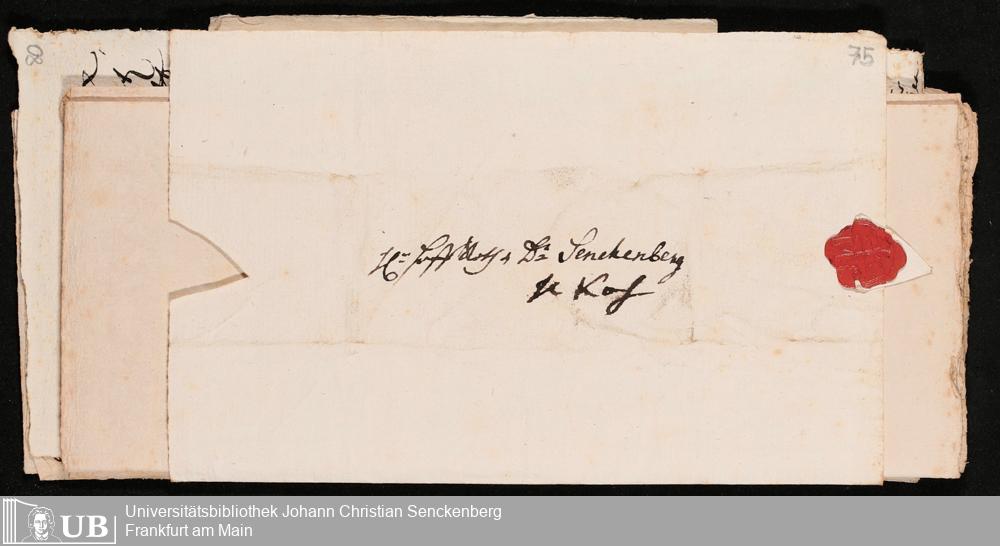 75
80
Hr Hoff Rath Dr. Senckenberg
UB
Universitätsbibliothek Johann Christian Senckenberg
Frankfurt am Main